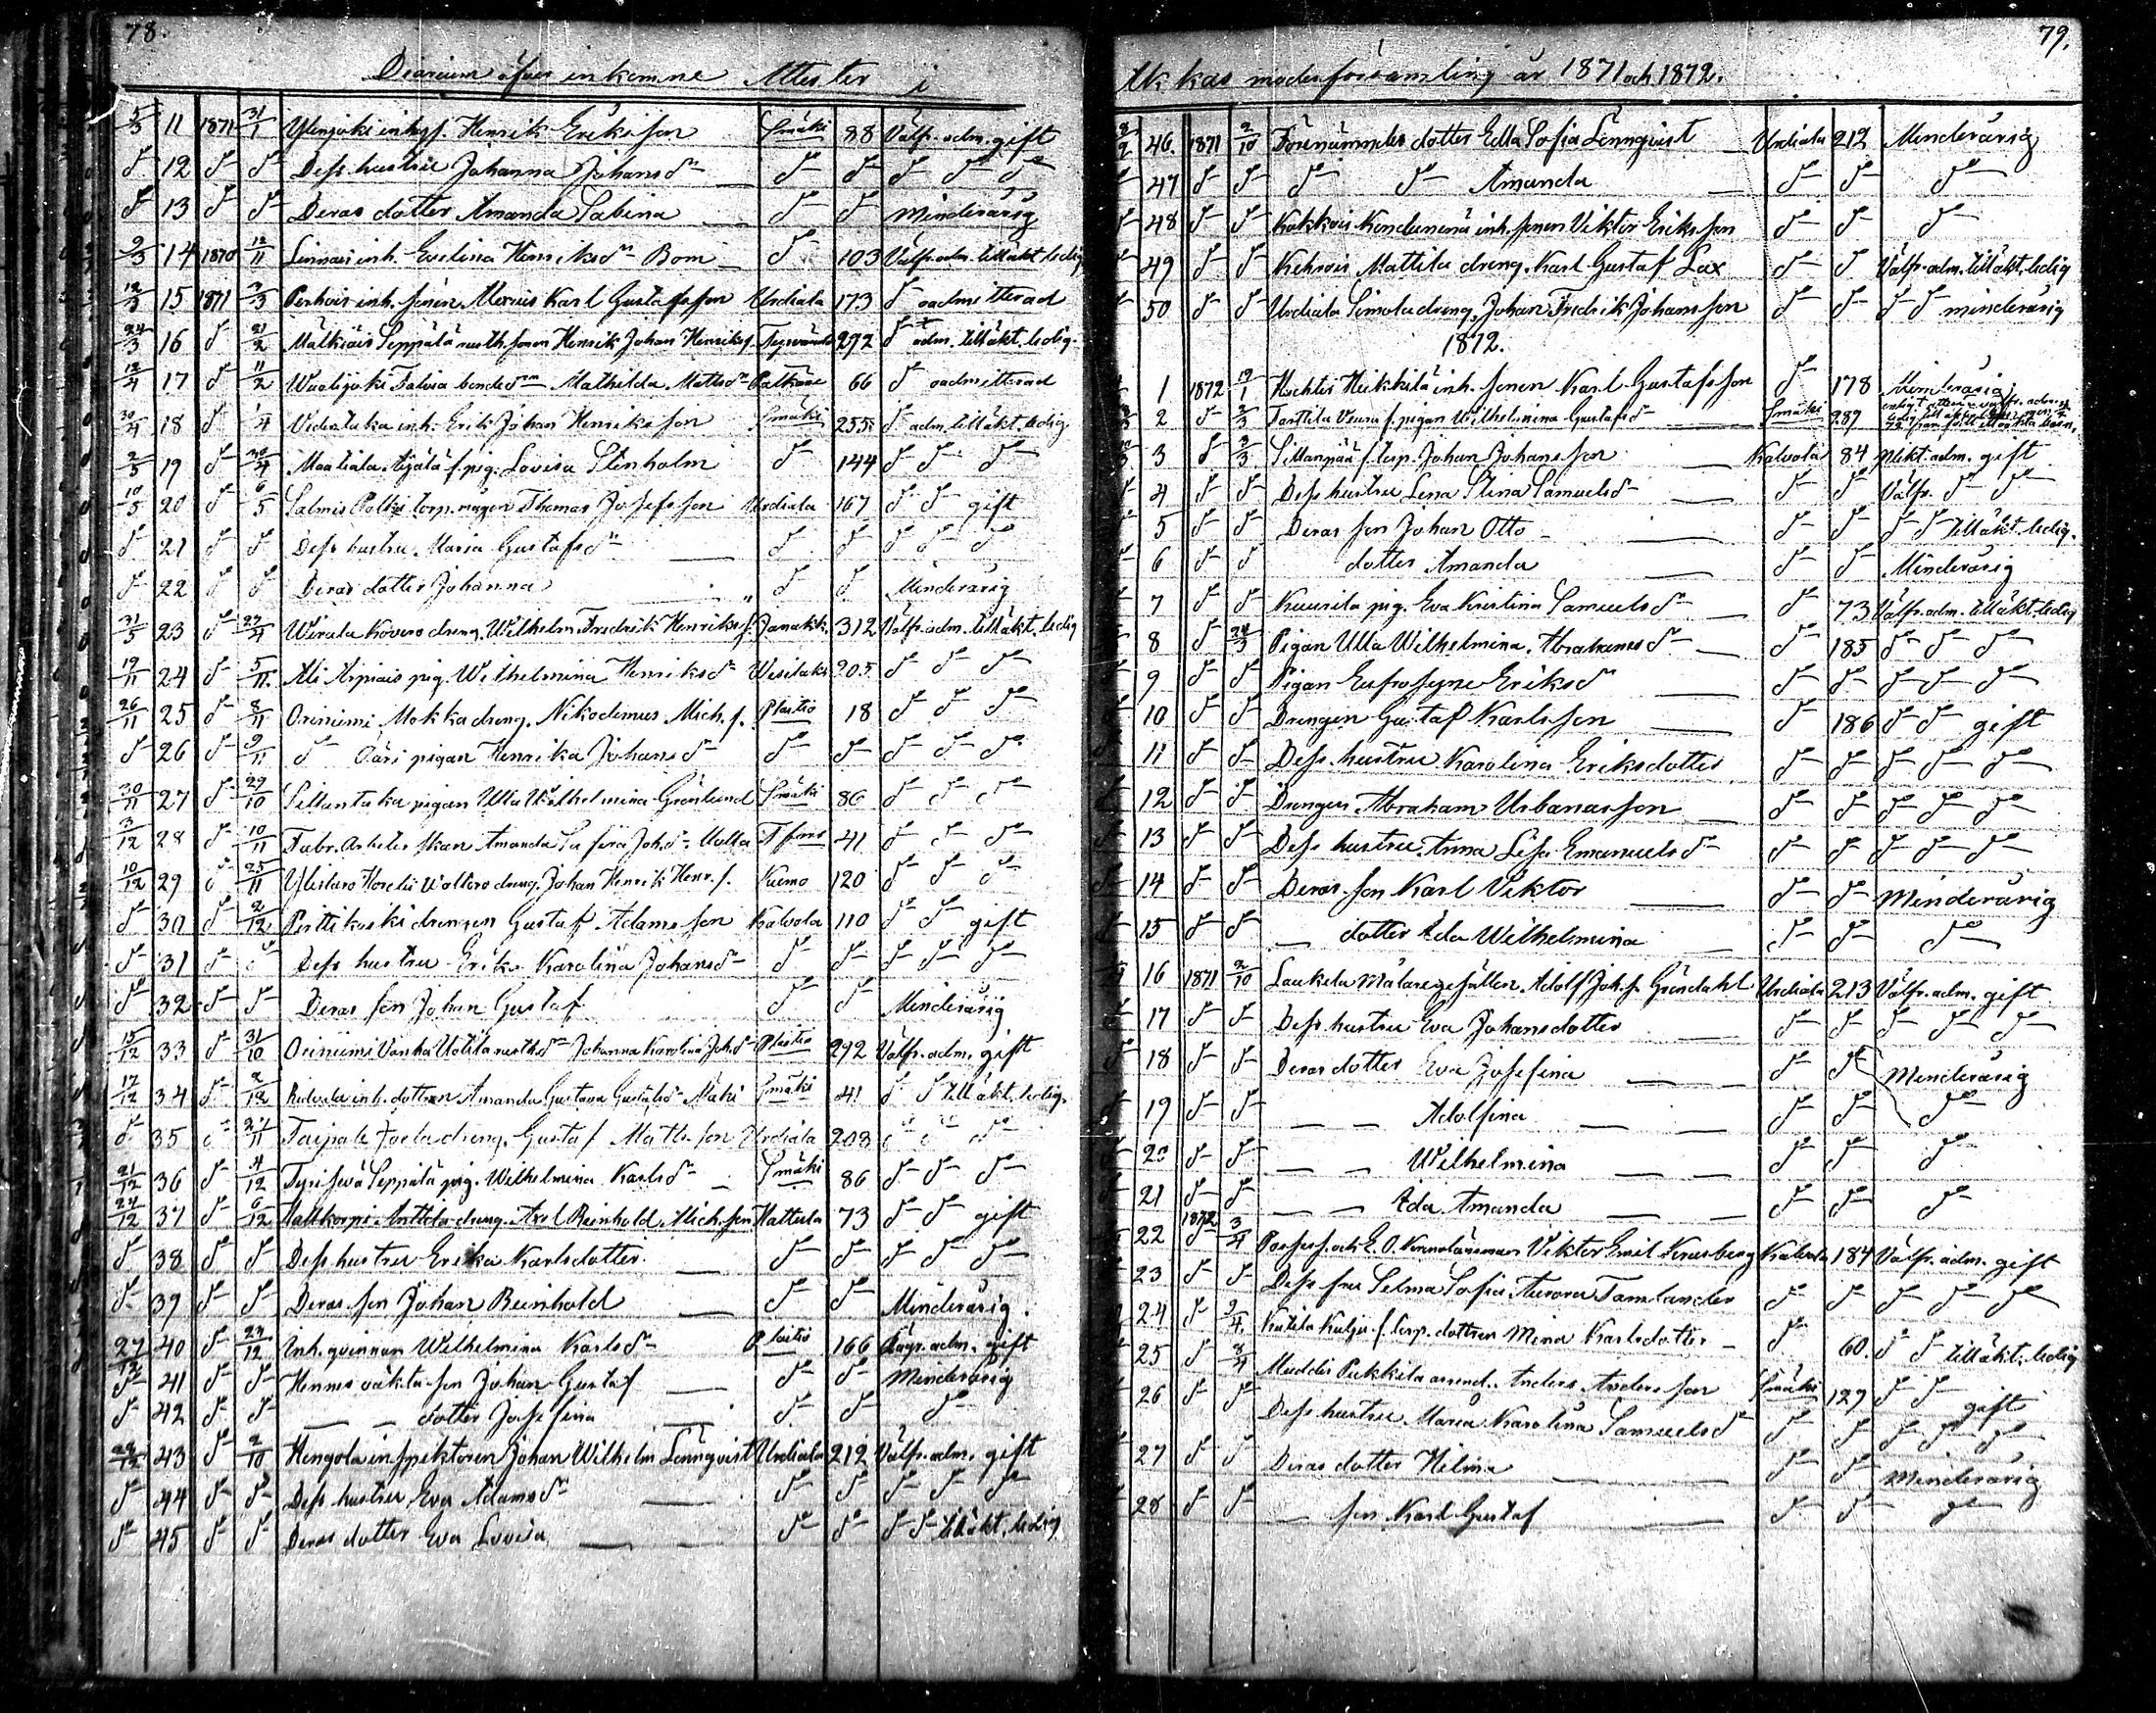 78.
Diarium öfver inkomne Attester i
5/3 11 1871 31/1 Ylenjoki inhys. Henrik Eriksson Smäki 88 Välfr. adm. gift
d 12 d d Dess hustru Johanna Johansdr d d d d d
d 13 d d Deras dotter Amanda Sabina d d minderårig
9/3 14 1870 12/11 inh. Evelina Henriksdr Bom d 103 Välfr. adm. till äkt. ledig
12/3 15 1871 2/3 inh. sonen Karl Gustafsson Urdiala 173 d oadmitterad
24/3 16 d 21/2 Mälkiäis Seppälä sonen Henrik Johan Henrikss. 292 d adm. till äkt. ledig.
12/4 17 d 11/2 Talvia bondedrn Mathilda Mattsdr Palkäne 66 d oadmitterad
30/4 18 d /4 inh. Erik Johan Henriksson Smäki 255 d adm. till äkt. ledig
2/5 19 d 30/4 f. pig. Lovisa Stenholm d 144 d d d
10/5 20 d 6/5 Salmis torp. mågen Thomas Josefsson Urdiala 167 d d gift
d 21 d d Dess hustru Maria Gustafsdr d d d d d
d 22 d d Deras dotter Johanna d d Minderårig
31/5 23 d 27/4 Wirala Kovero dreng. Wilhelm Fredrik Henrikss. Janakk. 312 Välfr. adm. till äkt. ledig
19/11 24 d 5/11 Ali Arpiais pig. Wilhelmina Henriksdr Wesilaks 205 d d d
26/11 25 d 8/11 Oriniemi Mokka dreng. Nikodemus Mich. s. Plaitio 18 d d d
d 26 d 9/11 d Päri pigan Henrika Johansdr d d d d d
30/11 27 d 29/10 Sillantaka pigan Ulla Wilhelmina Grönlund Smäki 86 d d d
3/12 28 d 10/11 Fabr. Arbeterskan Amanda Joh. dr Uolla T fors 41 d d d
10/12 29 d 25/11 Ylistaro dreng. Johan Henrik Henr. s. Kuemo 120 d d d
d 30 d 2/12 Perttikoski drengen Gustaf Adamsson Kalvola 110 d d gift
d 31 d d Dess hustru Erika Karolina Johansdr d d d d d
d 32 d d Deras son Johan Gustaf d d Minderårig
15/12 33 d 31/10 Orinienmi Vanha Uotila Johanna Karolina Joh. dr Plaitio 292 Välfr. adm. gift
17/12 34 d 2/12 inh. dottren Amanda Gustava Gustafsdr Mäki Smäki 41 d d till äkt. ledig.
d 35 d 27/11 Taipale dreng. Gustaf Mattsson Urdiala 208 d d d
21/12 36 d 4/12 Seppälä pig. Wilhelmina Karlsdr Smäki 86 d d d
24/12 37 d 6/12 Hattkorpi Anttila dreng. Axel Reinhold Mich. son Hattula 73 d d gift
d 38 d d Dess hustru Erika Karlsdotter d d d d d
d 39 d d Deras son Johan Reinhold d d Minderårig.
27/12 40 d 29/12 Inh. qvinnan Wilhelmina Karlsdr Plaitio 166 adm. gift
d 41 d d Hennes oäkta son Johan Gustaf d d Minderårig
d 42 d d dotter Josefina d d d
29/12 43 d 2/10 Hengola inspektoren Johan Wilhelm Lönnqvist Urdiala 212 Välfr. adm. gift
d 44 d d Dess hustru Eva Adamsdr d d d d d
d 45 d d Deras dotter Eva Lovisa d d d d till äkt. ledig
79.
moderförsamling år 1871 och 1872.
46. 1871 2/10 Förenämndes dotter Edla Sofia Lönnqvist Urdiala 212 Minderårig
47 d d d d Amanda d d d
48 d d inh. sonen Viktor Eriksson d d d
49 d d Mattila dreng. Karl Gustaf Lax d d Välfr. adm. till äkt. ledig
50 d d Urdiala Simola dreng. Johan Fredrik Johansson d d d d minderårig
1872.
1 1872 19/1 Heikkilä inh. sonen Karl Gustafsson d 178 Minderårig
2 d 2/3 f. pigan Wilhelmina Gustafsdr Smäki 289
3 d 2/3 Sillanpää f. torp. Johan Johansson Kalvola 84 adm. gift
4 d d Dess hustru Lena Stina Samuelsdr d d Välfr. d d
5 d d Deras son Johan Otto d d d d till äkt. ledig.
6 d d dotter Amanda d d Minderårig
7 d d pig. Eva Kristina Samuelsdr d 73 Välfr. adm. till äkt. ledig
8 d 24/3 Pigan Ulla Wilhelmina Abrahamsdr d 185 d d d
9 d d Pigan Eufrosyne Eriksdr d d d d d
10 d d Drengen Gustaf Karlsson d 186 d d gift
11 d d Dess hustru Karolina Eriksdotter d d d d d
12 d d Drengen Abraham Urbanusson d d d d d
13 d d Dess hustru Anna Lisa Emanuelsdr d d d d d
14 d d Deras son Karl Viktor d d Minderårig
15 d d dotter Ida Wilhelmina d d d
16 1871 2/10 Laukela Målaregesällen Adolf Joh. s. Gröndahl Urdiala 213 Välfr. adm. gift
17 d d Dess hustru Eva Johansdotter d d d d d
18 d d Deras dotter Eva Josefina d d Minderårig
19 d d Adolfina d d d
20 d d Wilhelmina d d d
21 d d Ida Amanda d d d
22 1872 d 3/4 Possess. och E. O. Viktor Emil Kalvola 184 Välfr. adm. gift
23 d d Dess fru Selma Sofia Aurora Tamlander d d d d d
24 d 2/4 f. torp. dottren Mina Karlsdotter d 60. d d till äkt. ledig
25 d 8/4 Pekkila arrend. Anders Andersson Smäki 129 d d gift
26 d d Dess hustru Maria Karolina Samuelsdr d d d d d
27 d d Deras dotter Hilma d d Minderårig
28 d d son Karl Gustaf d d d